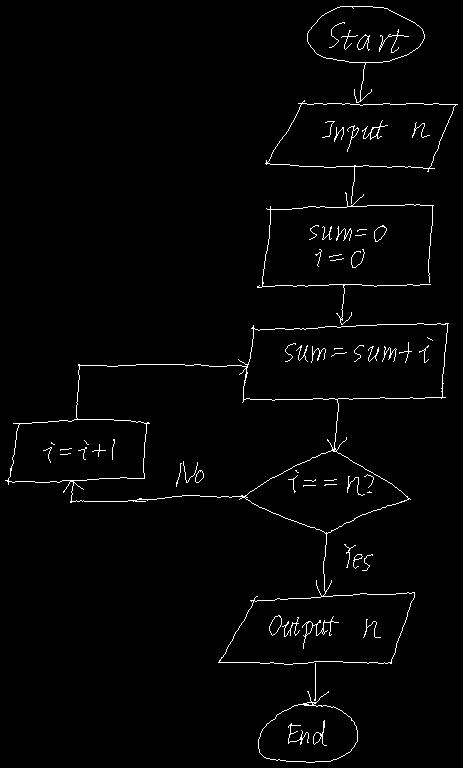 Start
Input n
sum=0
i=0
sum=sum+i
i=i+1
No
i==n?
Yes
Output n
End